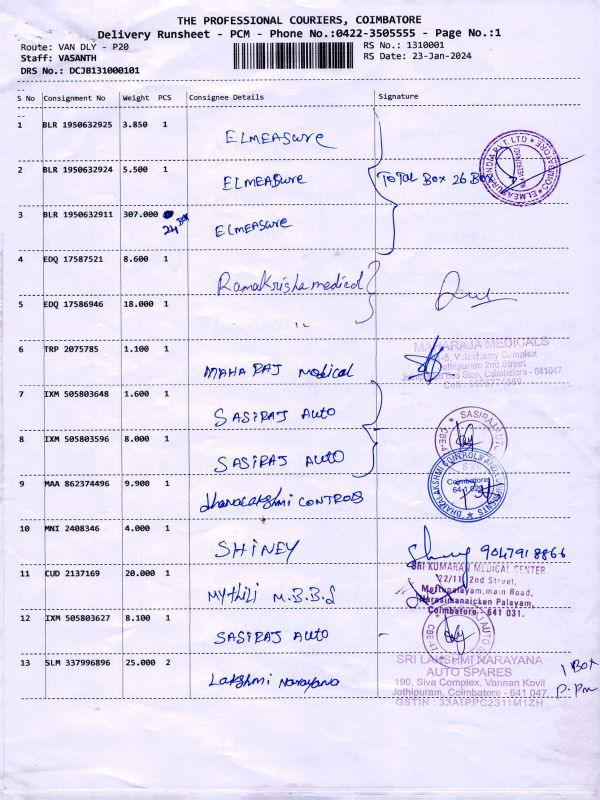 THE PROFESSIONAL COURIERS, COIMBATORE
Delivery Runsheet - PCM - Phone No.:0422-3505555 - Page No.:1
Route: VAN DLY - P20
RS No.: 1310001
Staff: VASANTH
RS Date: 23-Jan-2024
DRS No.: DCJB131000101
S No Consignment No Weight PCS Consignee Details Signature
1 BLR 1950632925 3.850 1 ELMEASURE
2 BLR 1950632924 5.500 1 ELMEASURE TOTAL BOX 26 BOX
3 BLR 1950632911 307.000 24 Box ELMEASURE
4 EDQ 17587521 8.600 1 Ramakrisha medical
5 EDQ 17586946 18.000 1 "
6 TRP 2075785 1.100 1 MAHARAJ medical
MAHARAJA MEDICALS
Complex
Jothipuram 2nd Street
Coimbatore - 641047
7 IXM 505803648 1.600 1 SASIRAJ AUTO
8 IXM 505803596 8.000 1 SASIRAJ AUTO
9 MAA 862374496 9.900 1 dhanalakshmi CONTROLS
Coimbatore
10 MNI 2408346 4.000 1 SHINEY 9047918866
11 CUD 2137169 20.000 1 Mythili M.B.B.S
SRI KUMARAN MEDICAL CENTER
22/11, 2nd Street,
Mettupalayam, main Road,
Narasimanaicken Palayam,
Coimbatore - 641 031.
12 IXM 505803627 8.100 1 SASIRAJ AUTO
13 SLM 337996896 25.000 2 Lakshmi Narayana
SRI LAKSHMI NARAYANA
AUTO SPARES
190, Siva Complex, Vannan Kovil
Jothipuram, Coimbatore - 641 047
GSTIN : 33AIPPC2311M1ZH
1 Box